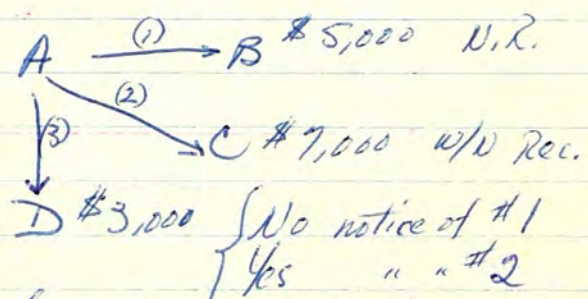 A (1) B $5,000 N.R.
(2)
(3) C $7,000 w/N Rec.
D $3,000 { No notice of #1
Yes " " #2